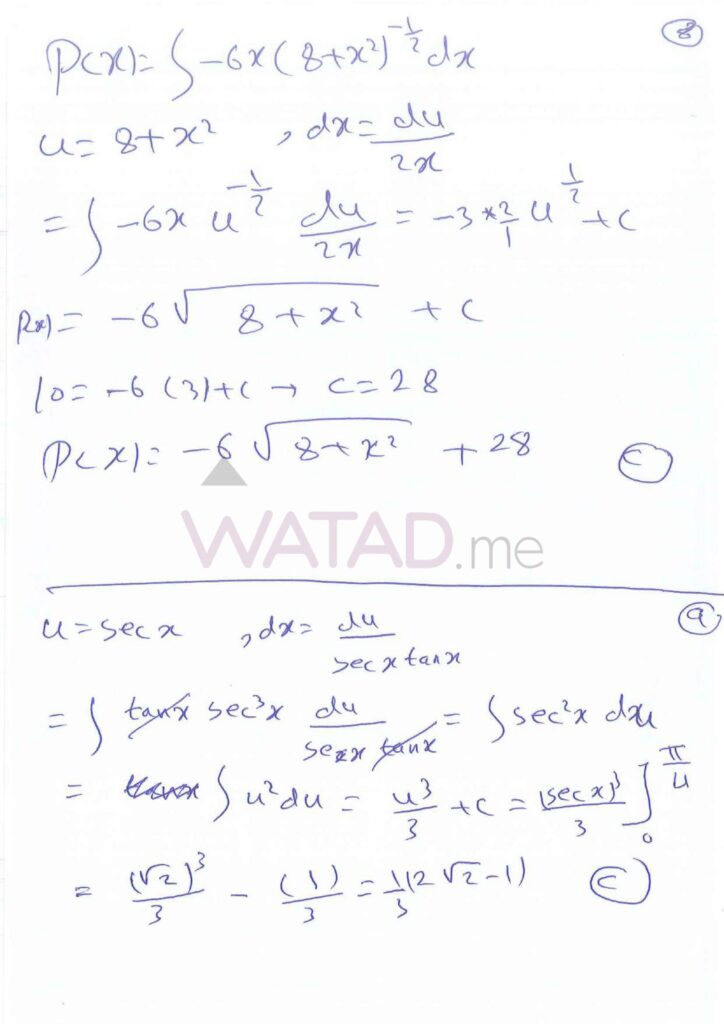 8
P(x)= ∫ -6x(8+x²)^{-1/2} dx
u= 8+x² , dx= du/2x
= ∫ -6x u^{-1/2} du/2x = -3*2/1 u^{1/2} +c
P(x)= -6√(8+x²) + c
10= -6(3)+c → c=28
P(x)= -6√(8+x²) +28 c
WATAD.me
9
u=secx , dx= du/secxtanx
= ∫ tanx sec³x du/secx tanx = ∫ sec²x du
= ∫ u²du = u³/3 +c = (secx)³/3 ]₀^{π/4}
= (√2)³/3 - (1)/3 = 1/3(2√2-1) c